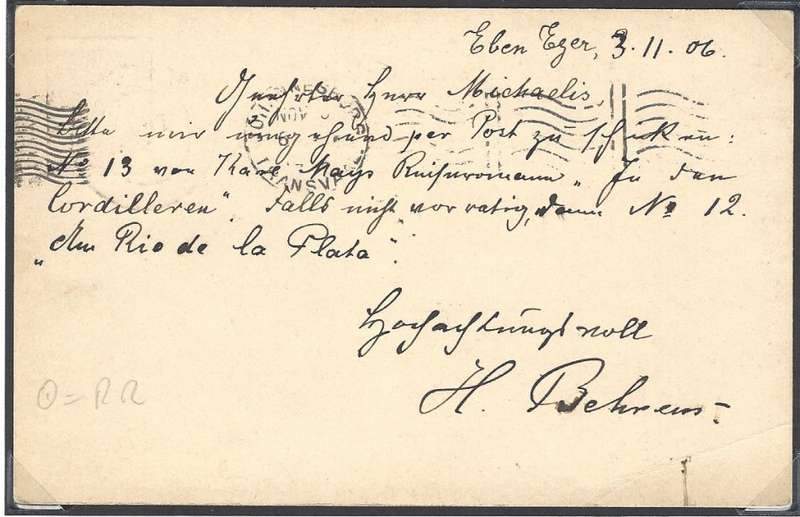 Eben Ezer, 3.11.06.
Geehrter Herr Michaelis,
Bitte mir umgehend per Post zu schicken:
No 13 von Karl Mays Reiseromane „In den
Cordilleren“. Falls nicht vorrätig, dann No 12.
„Am Rio de la Plata“.
Hochachtungsvoll
H. Behrens.
NOV
TRANSVAAL